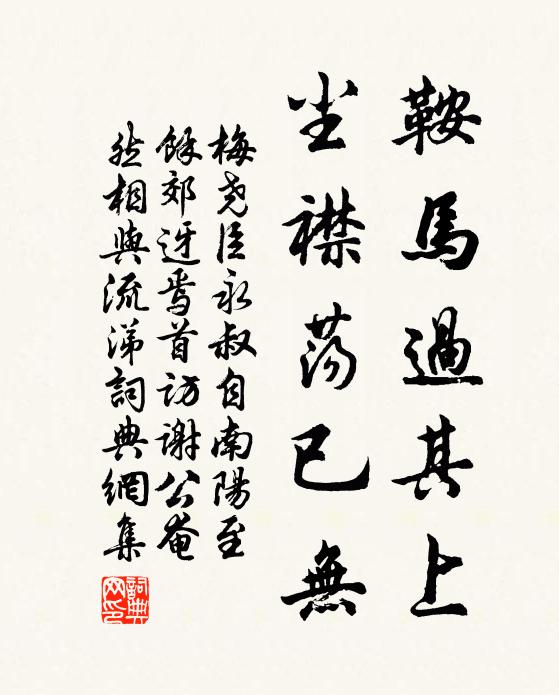 鞍馬過其上
坐襟蕩已無
梅堯臣永叔自南陽至
餘郊迓焉首訪謝公奄
然相與流涕詞典網集
詞典
网印